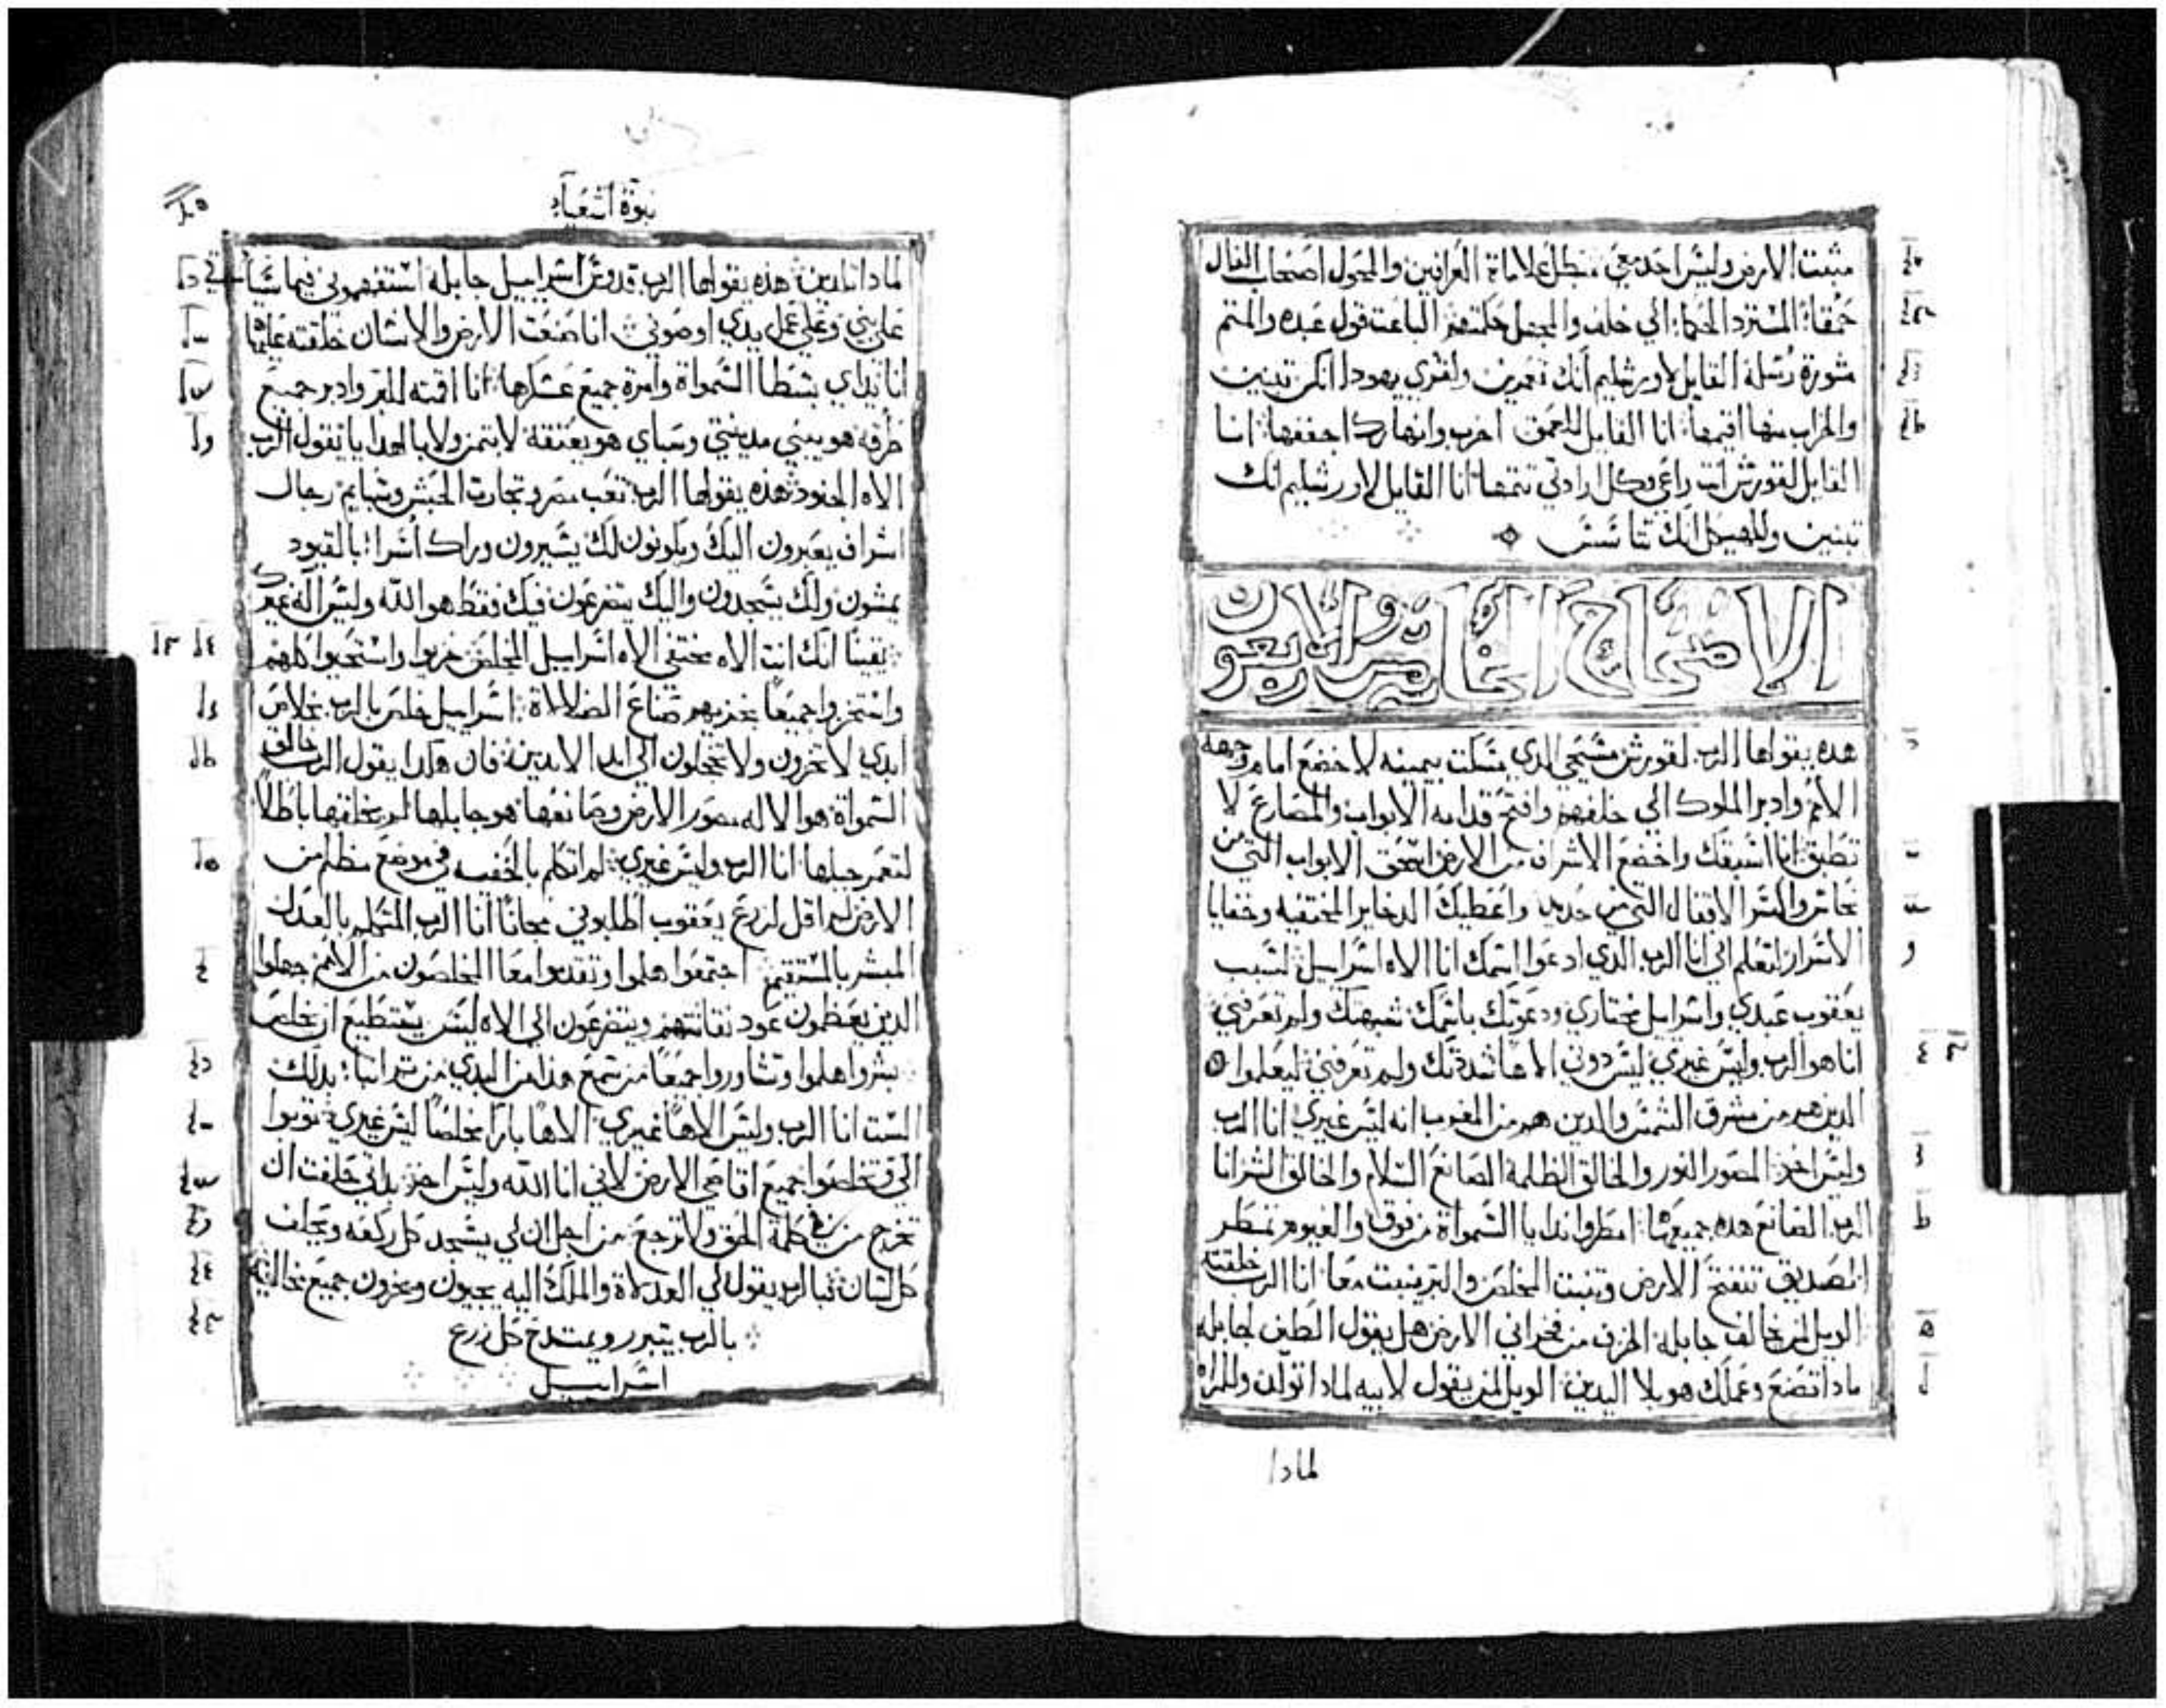 مثبت الارض وليس احد معي مبطل علاماة العرافين والمحول اصحاب الفال
حمقاء المسترد الحكماء الي خلف والمجهل حكمتهم الباعت قول عبده والمتم
مشورة رسله القايل لاورشليم انك تعمرين ولقري يهودا انكن تبنين
والخراب منها اقيمها انا القايل للعمق اخرب وانهارك اجففها انا
القايل لقورش انت راعي وكل ارادتي تتمها انا القايل لاورشليم انك
تبنين وللهيكل انك تتاسس
الاصحاح الخامس والاربعون
هده يقولها الرب لقورش مسيحي الدي مسكت بيمينه لاخضع امام وجهه
الامم وادبر الملوك الي خلفهم وافتح قدامه الابواب والمصارع لا
تطبق انا اسبقك واخضع الاشراف من الارض اسحق الابواب التي من
نحاس واكسر الاقفال التي من حديد واعطيك الدخاير المختفيه وخفايا
الاسرار لتعلم اني انا الرب الدي ادعوا اسمك انا الاه اسراييل لسبب
يعقوب عبدي واسراييل مختاري ودعوتك باسمك شبهتك ولم تعرفني
انا هو الرب وليس غيري ليس دوني الاها شددتك ولم تعرفني ليعلموا
الدين هم من مشرق الشمس والدين هم من المغرب انه ليس غيري انا الرب
وليس اخر المصور النور والخالق الظلمة الصانع السلام والخالق الشر انا
الرب الصانع هده جميعها امطروا ندا يا السمواة من فوق والغيوم تمطر
الصديق تنفتح الارض وتنبت المخلص والبر ينبت معا انا الرب خلقته
الويل لمن يخالف جابله الخزف من فخراني الارض هل يقول الطين لجابله
مادا تصنع وعملك هو بلا اليدين الويل لمن يقول لابيه لمادا تولد وللمراه
لمادا
نبوة اشعيا
لمادا تلدين هده يقولها الرب قدوس اسراييل جابله استفهموني فيما سياتي
علي بني وعلي عمل يدي اوصوني انا صنعت الارض والانسان خلقته عليها
انا يداي بسطا السمواة وامرة جميع عسكرها انا اقمته للبر وادبر جميع
طرقه هو يبني مدينتي وسباي هو يعتقه لا بتمن ولا بالهدايا يقول الرب
الاه الجنود هده يقولها الرب تعب مصر وتجارت الحبش وسبايم رجال
اشراف يعبرون اليك ويكونون لك يسيرون وراك اسراء بالقيود
يمشون ولك يسجدون واليك يتضرعون فيك فقط هو الله وليس اله غيرك
يقينا انك انت الاه مختفي الاه اسراييل المخلص خزيوا واستحيوا كلهم
وانتخزوا جميعا بخزيهم صناع الضلالاة اسراييل خلص بالرب بخلاص
ابدي لا تخزون ولا تخجلون الي ابد الابدين فان هكدا يقول الرب خالق
السمواة هو الاله مصور الارض وصانعها هو جابلها لم يخلقها باطلا
لتعمر جبلها انا الرب وليس غيري لم اتكلم بالخفيه في موضع مظلم من
الارض لم اقل لزرع يعقوب اطلبوني مجانا انا الرب المتكلم بالعدل
المبشر بالمستقيم اجتمعوا هلموا وتقدموا معا المخلصون من الامم جهلوا
الدين يعظمون عود نقاشتهم ويتضرعون الي الاه ليس يستطيع ان يخلص
بشروا هلموا وتشاوروا جميعا من سمع هدا من البدي من تم انبا بدلك
الست انا الرب وليس الاها غيري الاها بارا مخلصا ليس غيري توبوا
الي فتخلصوا جميع اقاصي الارض لاني انا الله وليس اخر بداتي حلفت ان
تخرج من في كلمة الحق ولا ترجع من اجل ان لي يسجد كل ركبه ويحلف
كل لسان فبالرب يقول لي العدلاة والملك اليه يجيون ويخزون جميع مخالفيه
بالرب يتبرر ويمتدح كل زرع
اسراييل